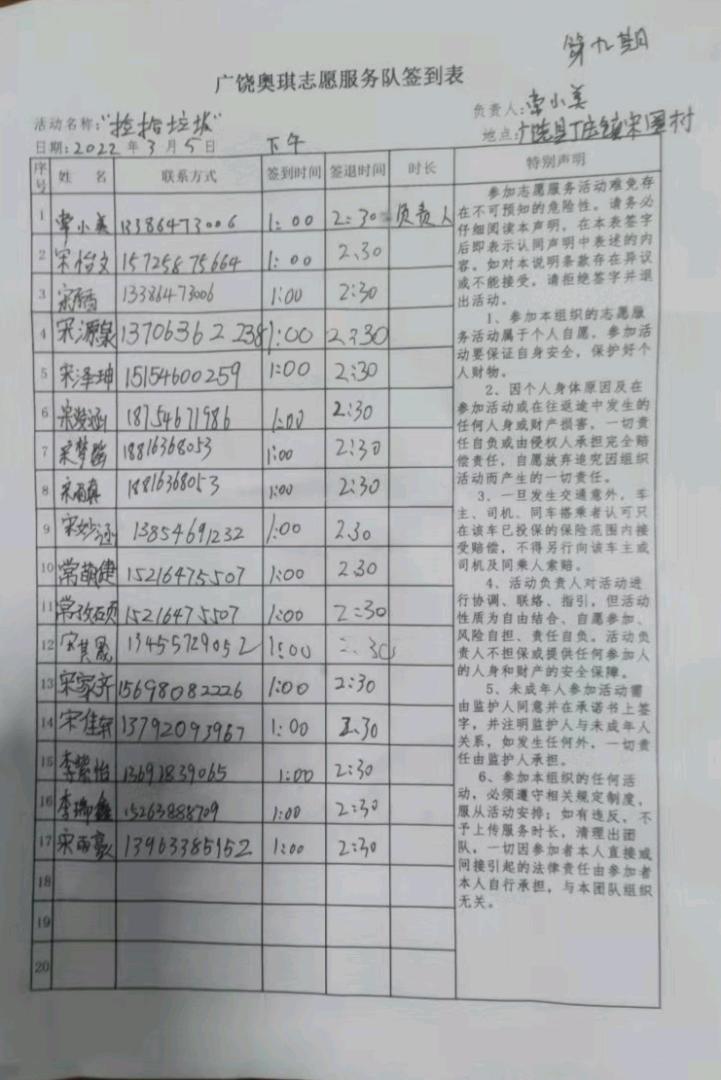 第九期
广饶奥琪志愿服务队签到表
活动名称:"捡拾垃圾"
负责人:常小美
日期:2022年3月5日 下午
地点:广饶县丁庄镇宋圈村
序号 姓名 联系方式 签到时间 签退时间 时长 特别声明
1 常小美 13386473006 1:00 2:30 负责人
2 宋怡文 15725875664 1:00 2.30
3 13386473006 1:00 2:30
4 宋源泉 13706362238 1:00 2:30
5 宋泽坤 15154600259 1:00 2:30
6 18754671986 1:00 2:30
7 宋梦 18816368053 1:00 2:30
8 18816368053 1:00 2:30
9 宋妙涵 13854691232 1:00 2.30
10 常 15216475507 1:00 2.30
11 常 15216475507 1:00 2:30
12 宋其晟 13455729052 1:00 2.30
13 宋家齐 15698082226 1:00 2:30
14 宋佳轩 13792093967 1:00 2.30
15 李紫怡 13692839065 1:00 2:30
16 李瑞鑫 15263888709 1:00 2:30
17 宋雨豪 13963385152 1:00 2:30
18
19
20
参加志愿服务活动难免存
在不可预知的危险性。请务必
仔细阅读本声明，在本表签字
后即表示认同声明中表述的内
容。如对本说明条款存在异议
或不能接受，请拒绝签字并退
出活动。
1、参加本组织的志愿服
务活动属于个人自愿，参加活
动要保证自身安全，保护好个
人财物。
2、因个人身体原因及在
参加活动或在往返途中发生的
任何人身或财产损害，一切责
任自负或由侵权人承担完全赔
偿责任，自愿放弃追究因组织
活动而产生的一切责任。
3、一旦发生交通意外，车
主、司机、同车搭乘者认可只
在该车已投保的保险范围内接
受赔偿，不得另行向该车主或
司机及同乘人索赔。
4、活动负责人对活动进
行协调、联络、指引，但活动
性质为自由结合、自愿参加、
风险自担、责任自负。活动负
责人不担保或提供任何参加人
的人身和财产的安全保障。
5、未成年人参加活动需
由监护人同意并在承诺书上签
字，并注明监护人与未成年人
关系，如发生任何外，一切责
任由监护人承担。
6、参加本组织的任何活
动，必须遵守相关规定制度，
服从活动安排；如有违反，不
予上传服务时长，清理出团
队，一切因参加者本人直接或
间接引起的法律责任由参加者
本人自行承担，与本团队组织
无关。